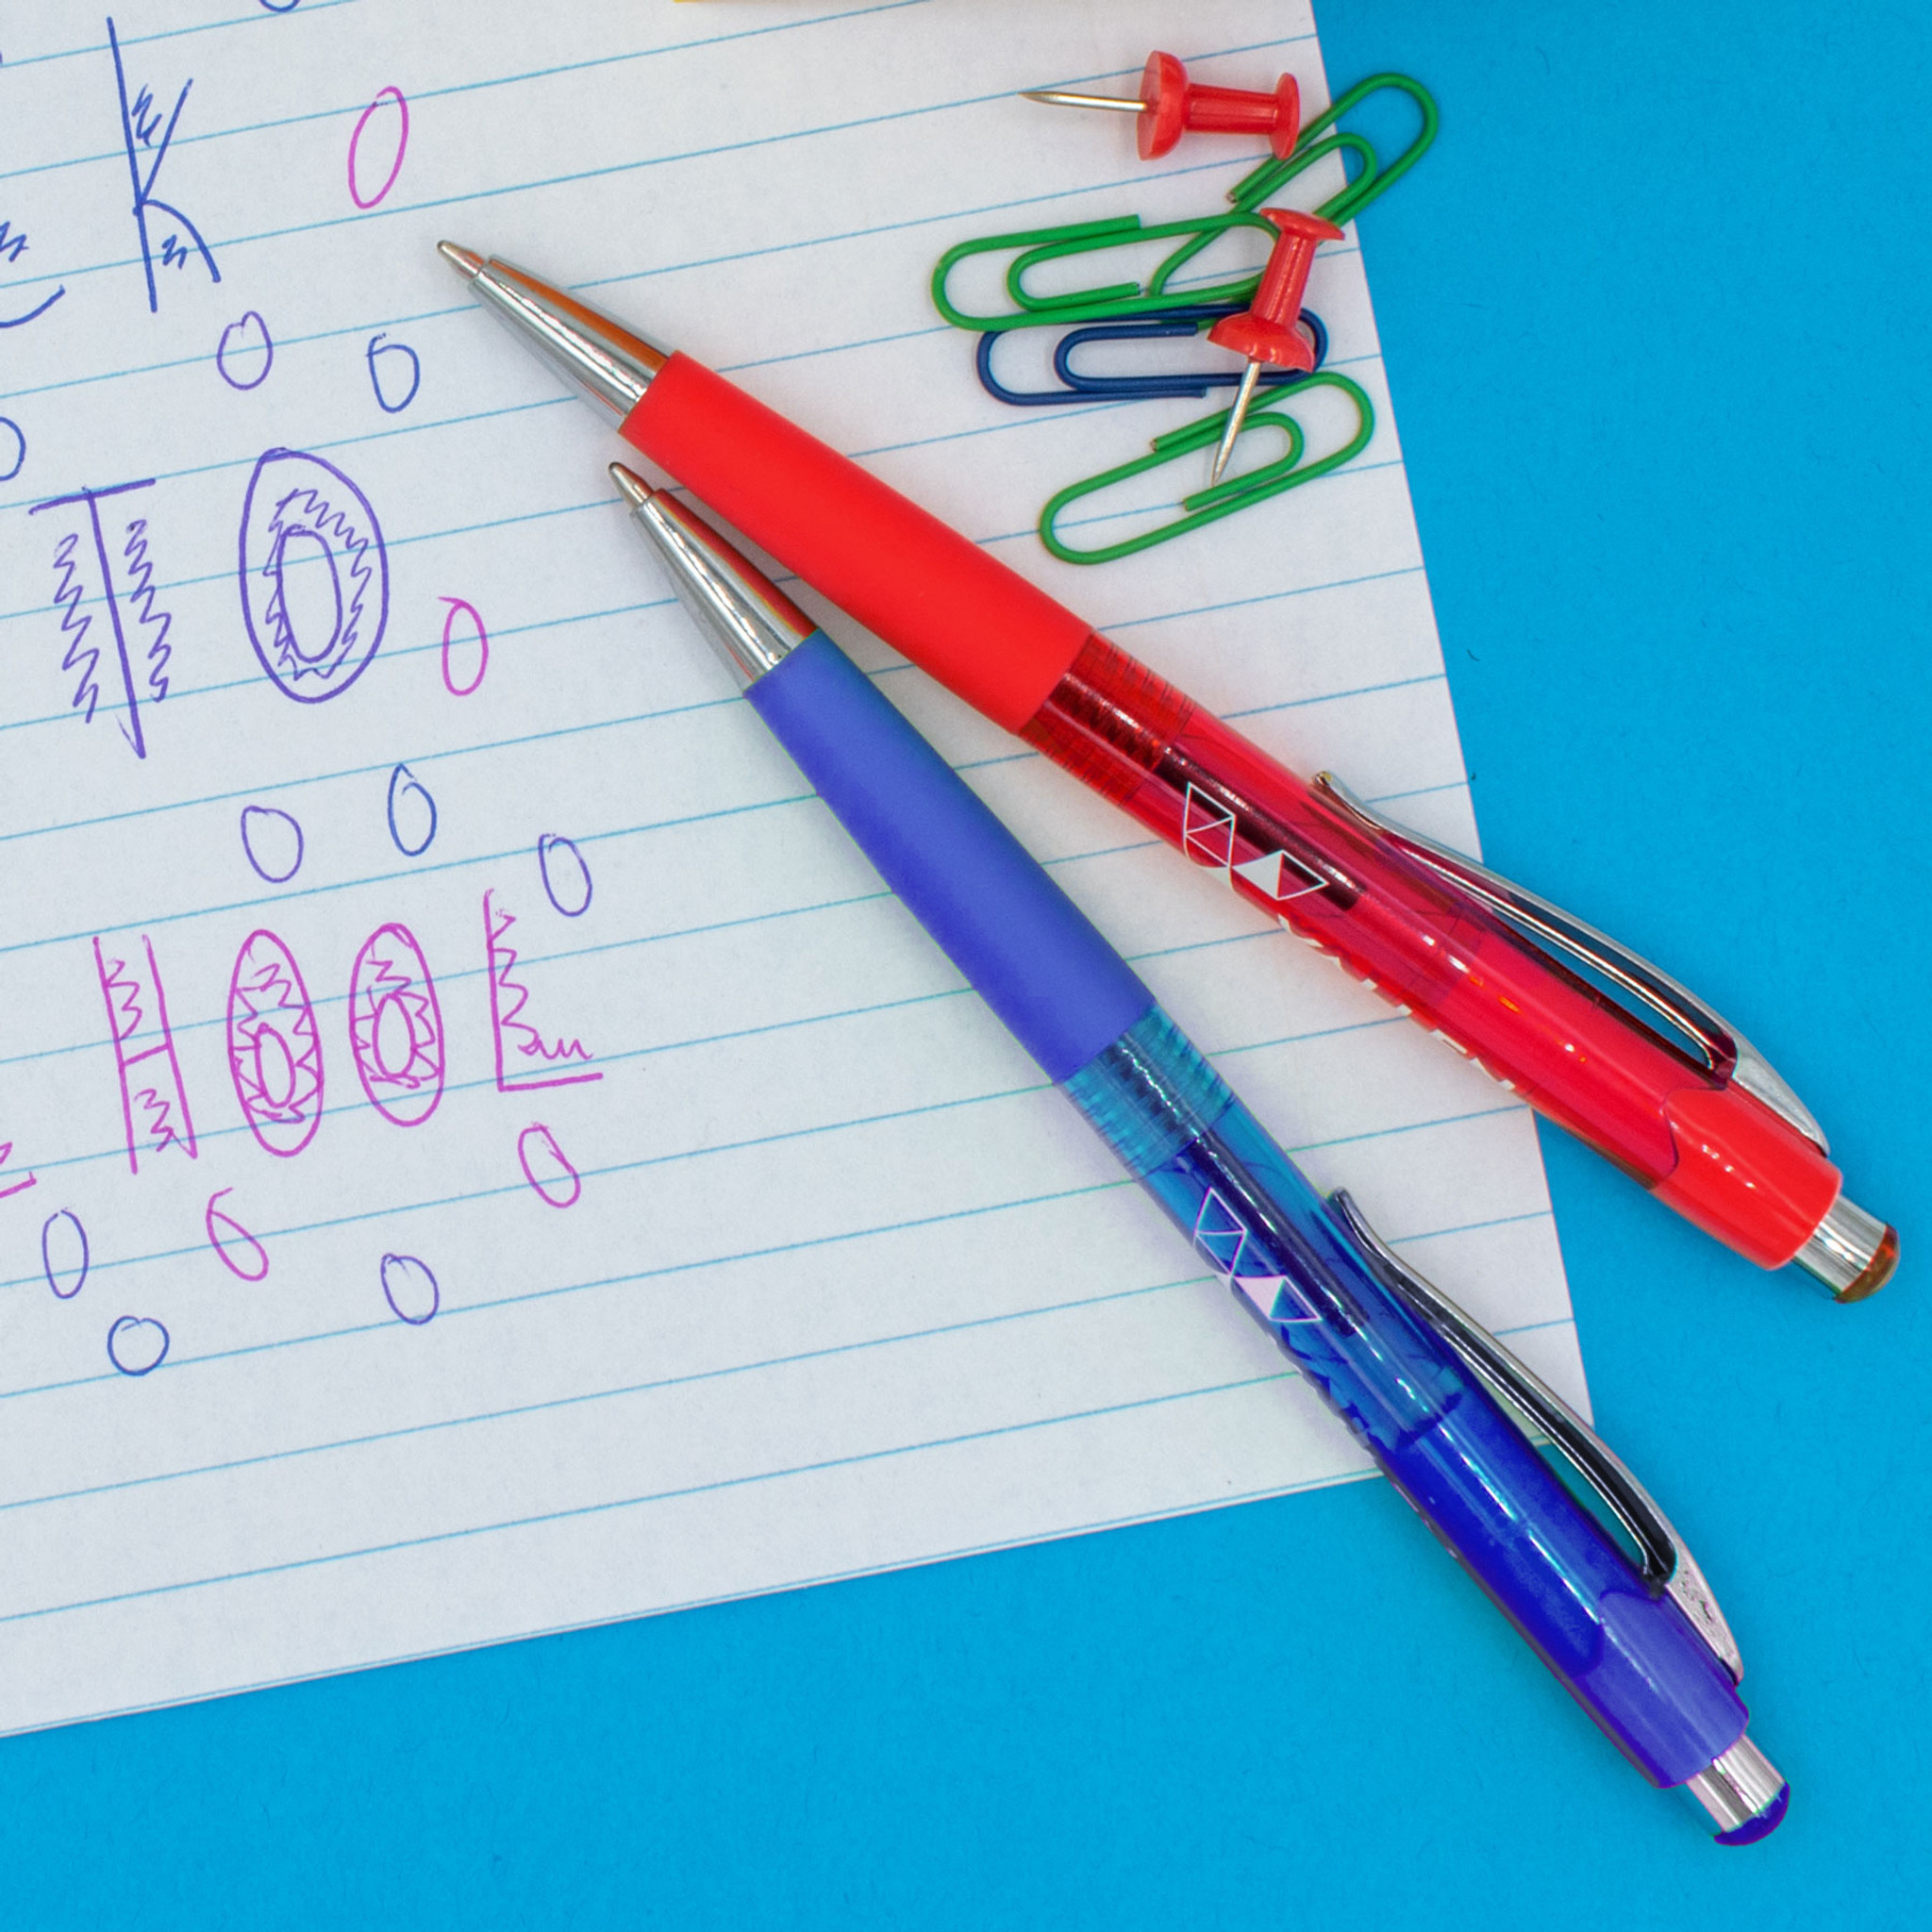 K
TO
HOOL